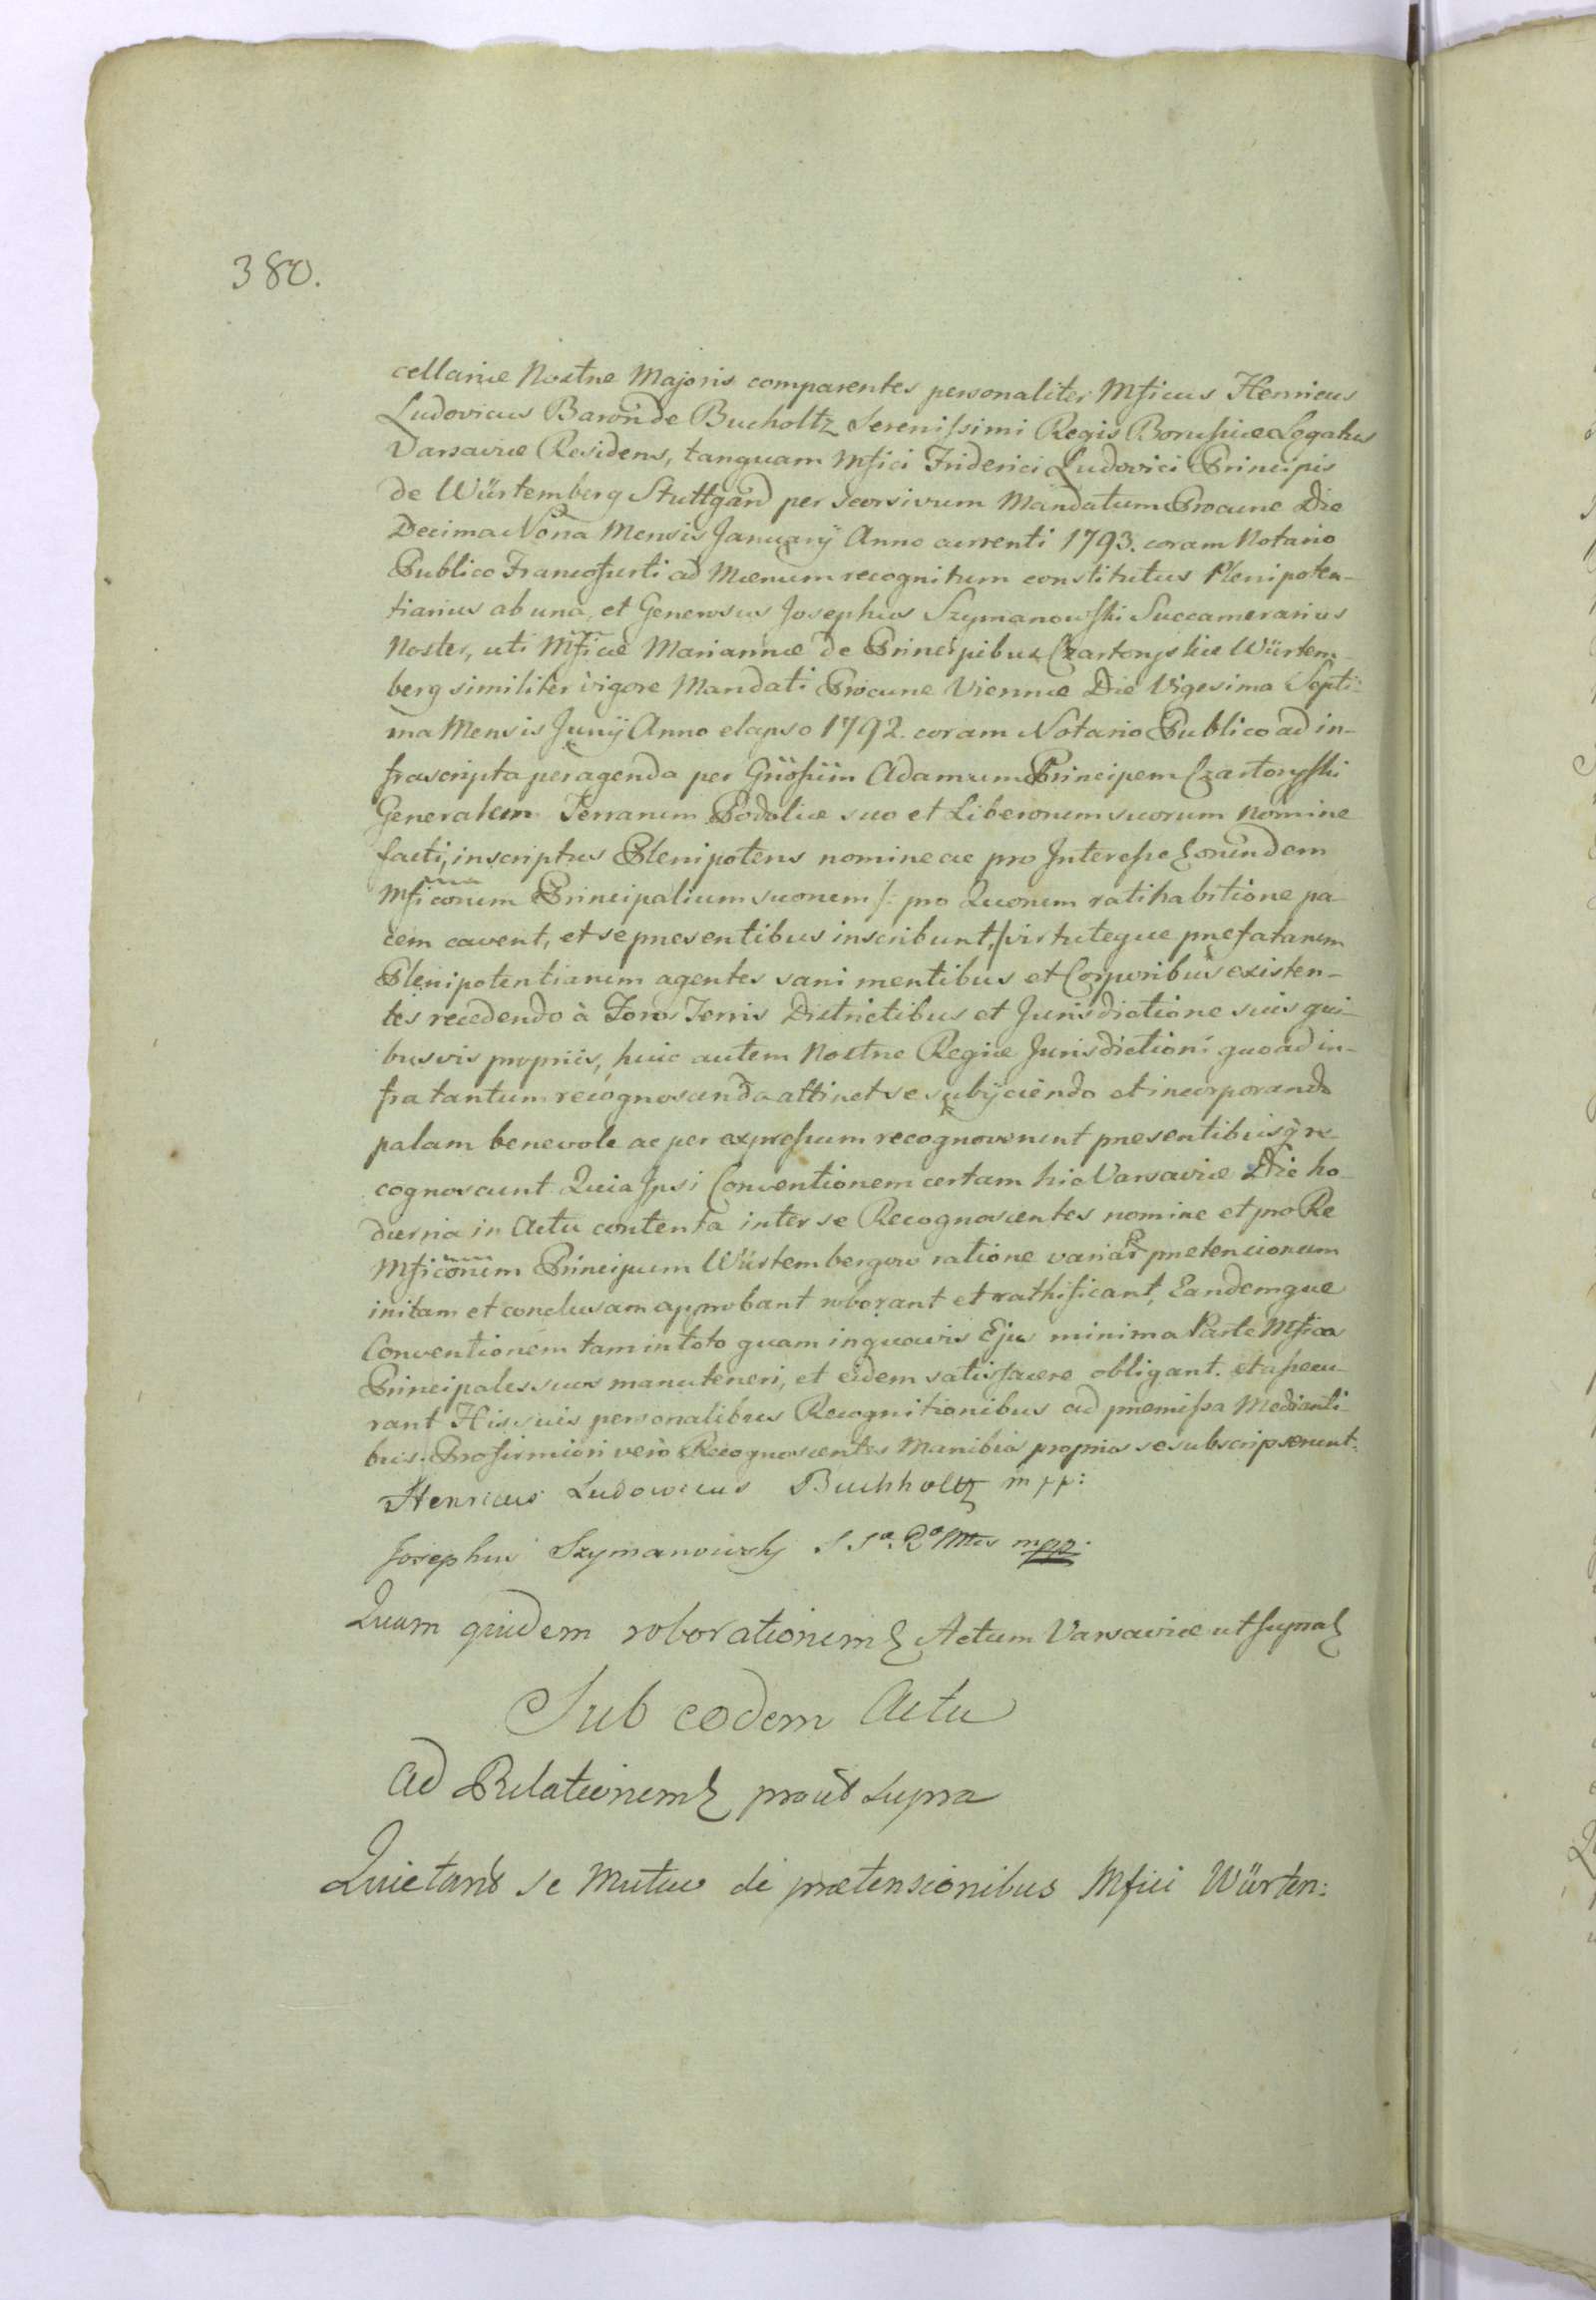 380.
cellariæ Nostræ Majoris comparentes personaliter Mficus Henricus
Ludovicus Baron de Bucholtz Serenissimi Regis Borussiæ Legatus
Varsaviæ Residens, tanquam Mfici Friderici Ludovici Principis
de Würtemberg Stuttgard per seorsivum Mandatum Procurae Die
Decima Nona Mensis January Anno currenti 1793. coram Notario
Publico Francofurti ad Mœnum recognitum constitutus Plenipoten-
tiarius ab una, et Generosus Josephus Szymanowski Succamerarius
Noster, uti Mficæ Mariannæ de Principibus Czartoryskie Würtem-
berg similiter vigore Mandati Procuræ Viennæ Die Vigesima Septi-
ma Mensis Junÿ Anno elapso 1792. coram Notario Publico ad in-
frascripta peragenda per Adamum Principem Czartoryski
Generalem Terrarum Podoliæ suo et Liberorum suorum nomine
facti, inscriptus Plenipotens nomine ac pro Interesse Eorundem
Mficorum Principalium suorum /: pro Quorum ratihabitione pa-
cem cavent, et se præsentibus inscribunt, virtuteque præfatarum
Plenipotentiarum agentes sani mentibus et Corporibus existen-
tes recedendo à Foros Terris Districtibus et Jurisdictione suis qui-
busvis propriis, huic autem Nostræ Regiæ Jurisdictioni quo ad in-
fra tantum recognoscenda attinet se subÿciendo et incorporando
palam benevole ac per expressum recognoverunt præsentibusq̃ re-
cognoscunt Quia Ipsi Conventionem certam hic Varsaviæ Die ho-
dierna in Actu contenta inter se Recognoscentes nomine et pro Re
Mficorum Principum Würtembergow ratione variar prætencionum
initam et conclusam approbant roborant et rathificant, Eandemque
Conventionem tam in toto quam in quavis Ejus minima Parte Mficos
Principales suos manuteneri, et eidem satisfacere obligant. et assecu-
rant His suis personalibus Recognitionibus ad præmissa Medianti-
bus. Pro firmiori vero Recognoscentes Manibus propriis se subscripserunt.
Henricus Ludowicus Buchholtz mpp:
Josephus Szymanowsky S Sa Ra Mtis mpp.
Quam quidem roborationem Actum Varsaviæ ut supra
Sub eodem Actu
Ad Relationem prout supra
Quietant se Mutuo de prætensionibus Mfici Würten: